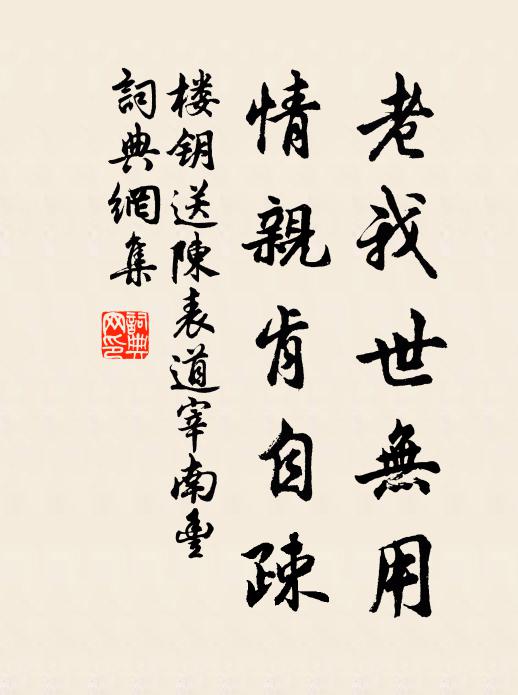 老我世無用
情親肯自疎
楼钥送陳表道宰南豐
詞典網集
詞典网印